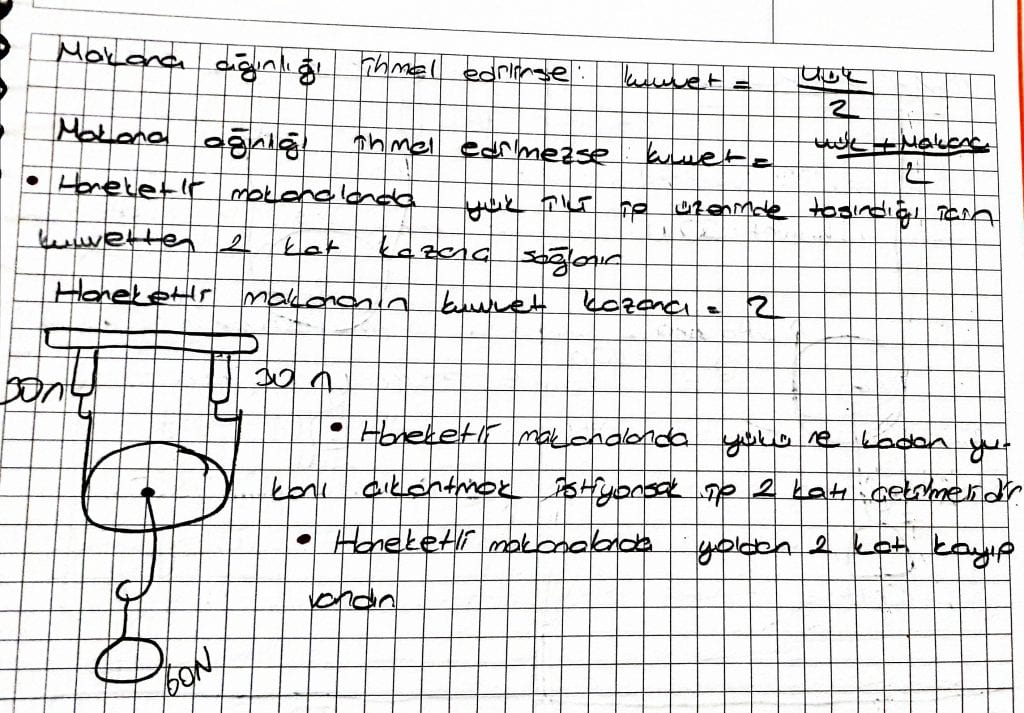 Makara ağırlığı ihmal edilirse: kuvvet = yük / 2
Makara ağırlığı ihmal edilmezse kuvvet = yük + Makara / 2
• Hareketli makaralarda yük iki ip üzerinde taşındığı için
kuvvetten 2 kat kazanç sağlanır
Hareketli makaranın kuvvet kazancı = 2
30n
30 n
• Hareketli makaralarda yükü ne kadar yu-
karı çıkartmak istiyorsak ip 2 katı çekilmelidir
• Hareketli makaralarda yoldan 2 kat kayıp
vardır
60N